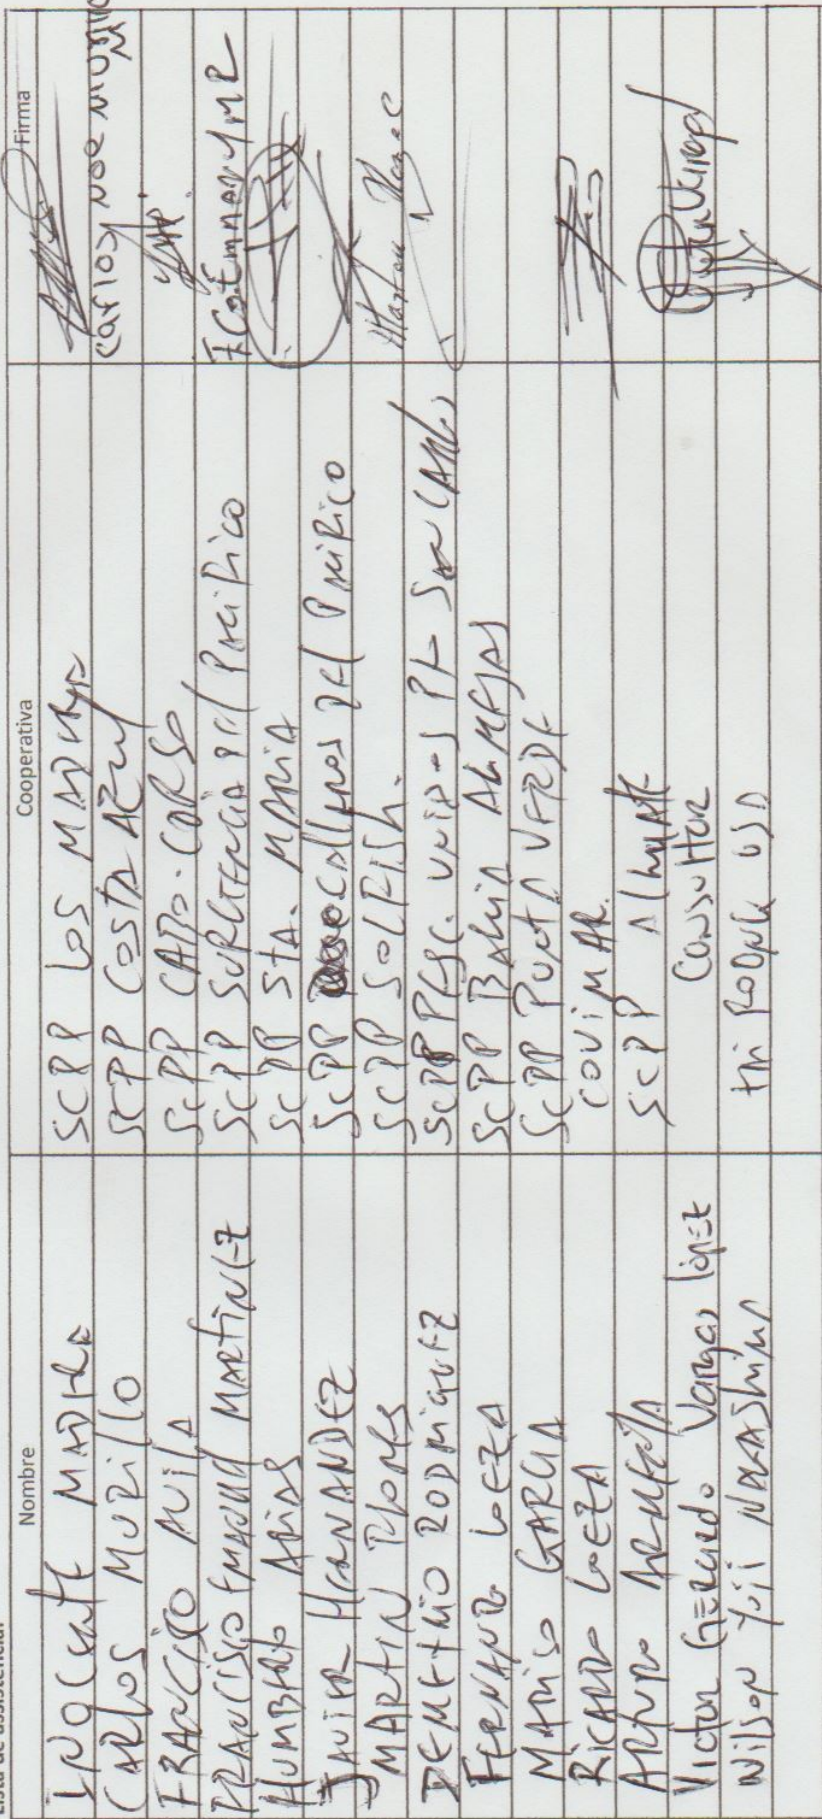 Lista de assistencia:
Nombre Cooperativa Firma
INOCENTE MADERA SCPP LOS MADERA
CARLOS MURILLO SCPP COSTA AZUL Carlos Noe Murillo
FRANCISCO AVILA SCPP CABO-CORSO
FRANCISCO EMANUEL MARTINEZ SCPP SURGTENCIA DEL PACIFICO
HUMBERTO ARIAS SCPP STA. MARIA
JAVIER HERNANDEZ SCPP DEL PACIFICO
MARTIN FLORES SCPP SOLFISH.
DEMETRIO RODRIGUEZ SCPP PESC. UNIDOS PTO SAN CARLOS
FERNANDO LOEZA SCPP BAHIA ALMEJAS
MARISO GARCIA SCPP PUNTA VERDE
RICARDO LOEZA COVIMAR.
ARTURO SCPP
Victor Gerardo Vargas López CONSULTOR
Wilson Yuji NAKASHIMA USD